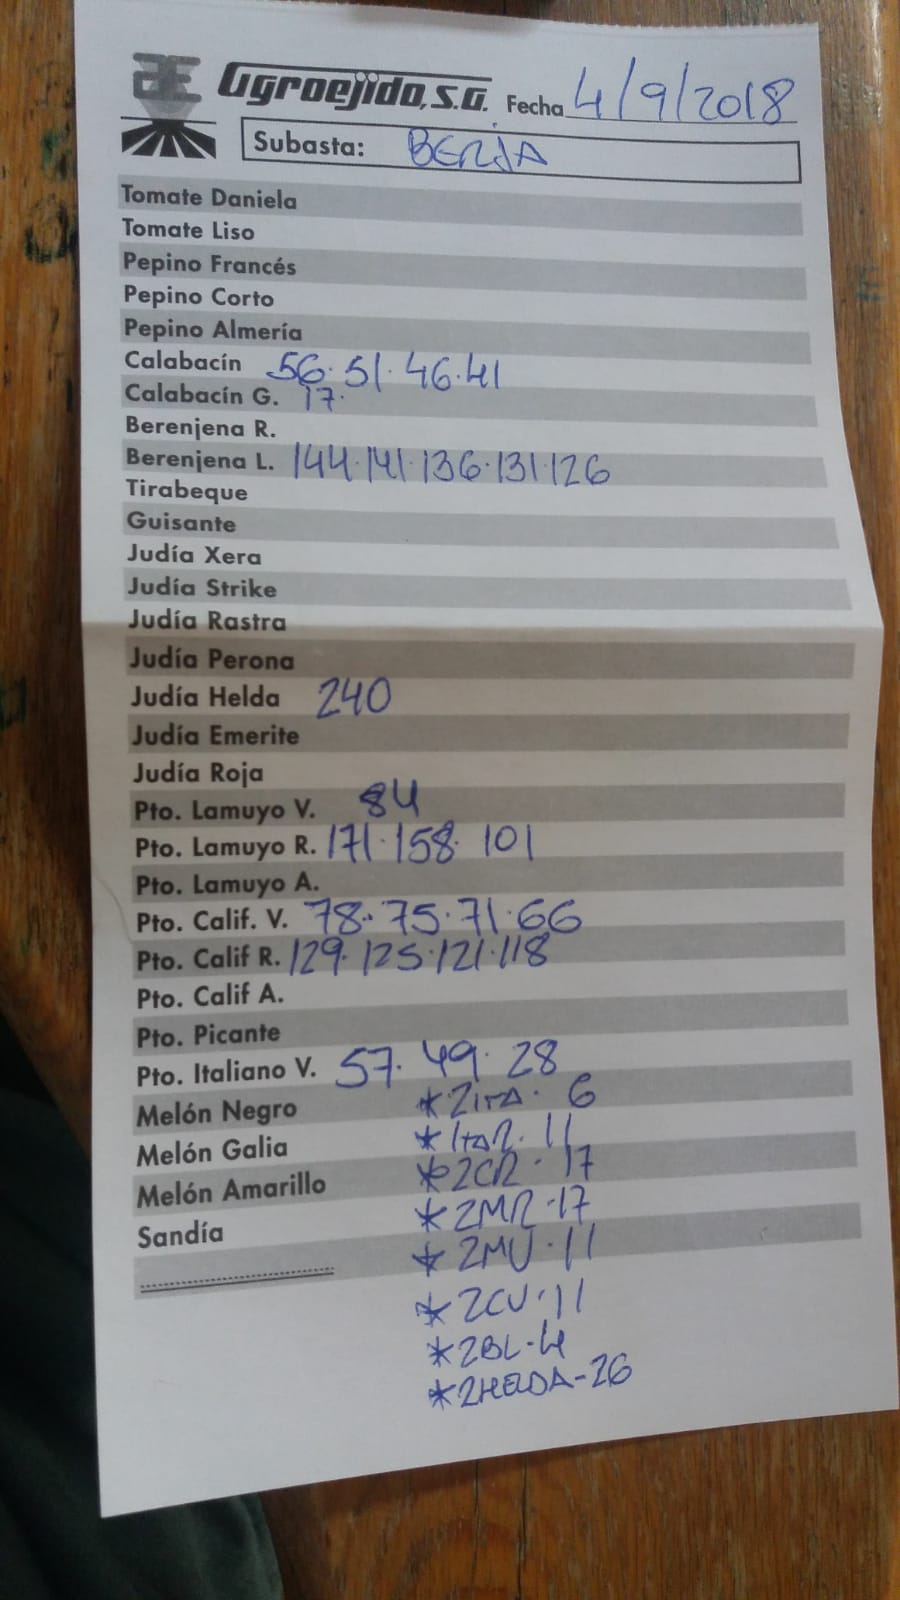 AE Agroejido, S.A. Fecha 4/9/2018
Subasta: BERJA
Tomate Daniela
Tomate Liso
Pepino Francés
Pepino Corto
Pepino Almería
Calabacín 56.51.46.41
Calabacín G. 17.
Berenjena R.
Berenjena L. 144.141.136.131.126
Tirabeque
Guisante
Judía Xera
Judía Strike
Judía Rastra
Judía Perona
Judía Helda 240
Judía Emerite
Judía Roja
Pto. Lamuyo V. 84
Pto. Lamuyo R. 171.158.101
Pto. Lamuyo A.
Pto. Calif. V. 78.75.71.66
Pto. Calif R. 129.125.121.118
Pto. Calif A.
Pto. Picante
Pto. Italiano V. 57.49.28
Melón Negro *2ITA. 6
Melón Galia *ItaR. 11
Melón Amarillo *2CR. 17
Sandía *2MR.17
*2MV.11
*2CV.11
*2BL-4
*2HELDA-26